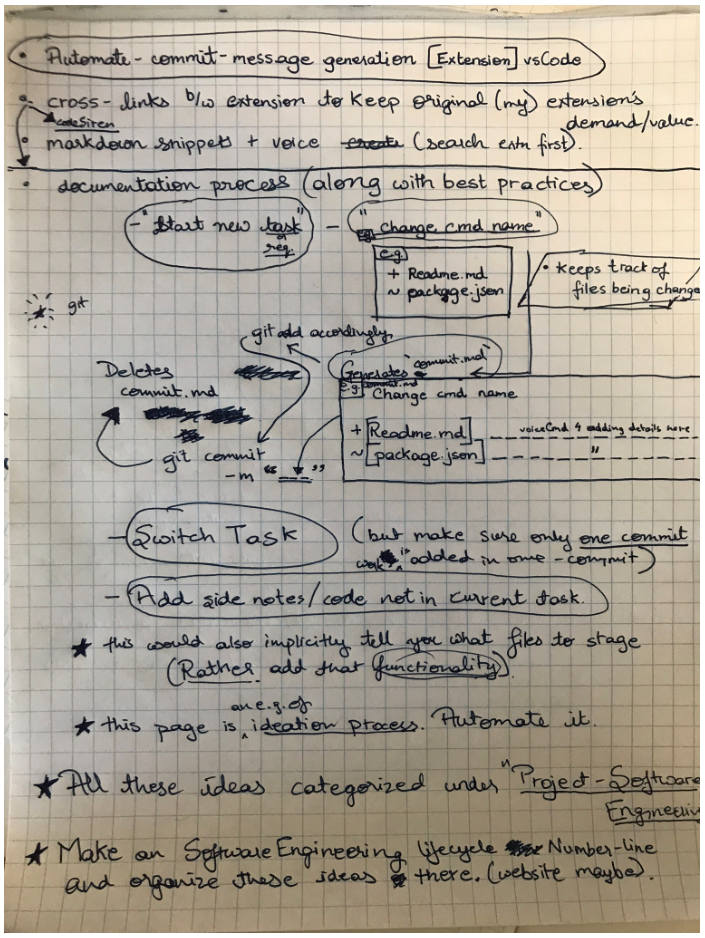 • Automate-commit-message generation [Extension] vsCode
• cross-links b/w extension to keep original (my) extension's
demand/value.
codeSiren
• markdown snippets + voice create (search extn first).
• documentation process (along with best practices)
- "Start new task" - "change cmd name"
or
req.
e.g.
e.g.
+ Readme.md
~ package.json
• keeps track of
files being change
git
git add accordingly
Generates `commit.md`
Deletes
commit.md
e.g. commit.md
Change cmd name
+ [Readme.md] voiceCmd 4 adding details here
~ [package.json] "
git commit
-m "___"
- Switch Task (but make sure only one commit
work is added in one-commit)
- Add side notes/code not in current task.
★ this would also implicitly tell you what files to stage
(Rather add that functionality).
an e.g. of
★ this page is ^ ideation process. Automate it.
★ All these ideas categorized under "Project-Software
Engineerin
★ Make an Software Engineering lifecycle Number-line
and organize these ideas there. (website maybe).